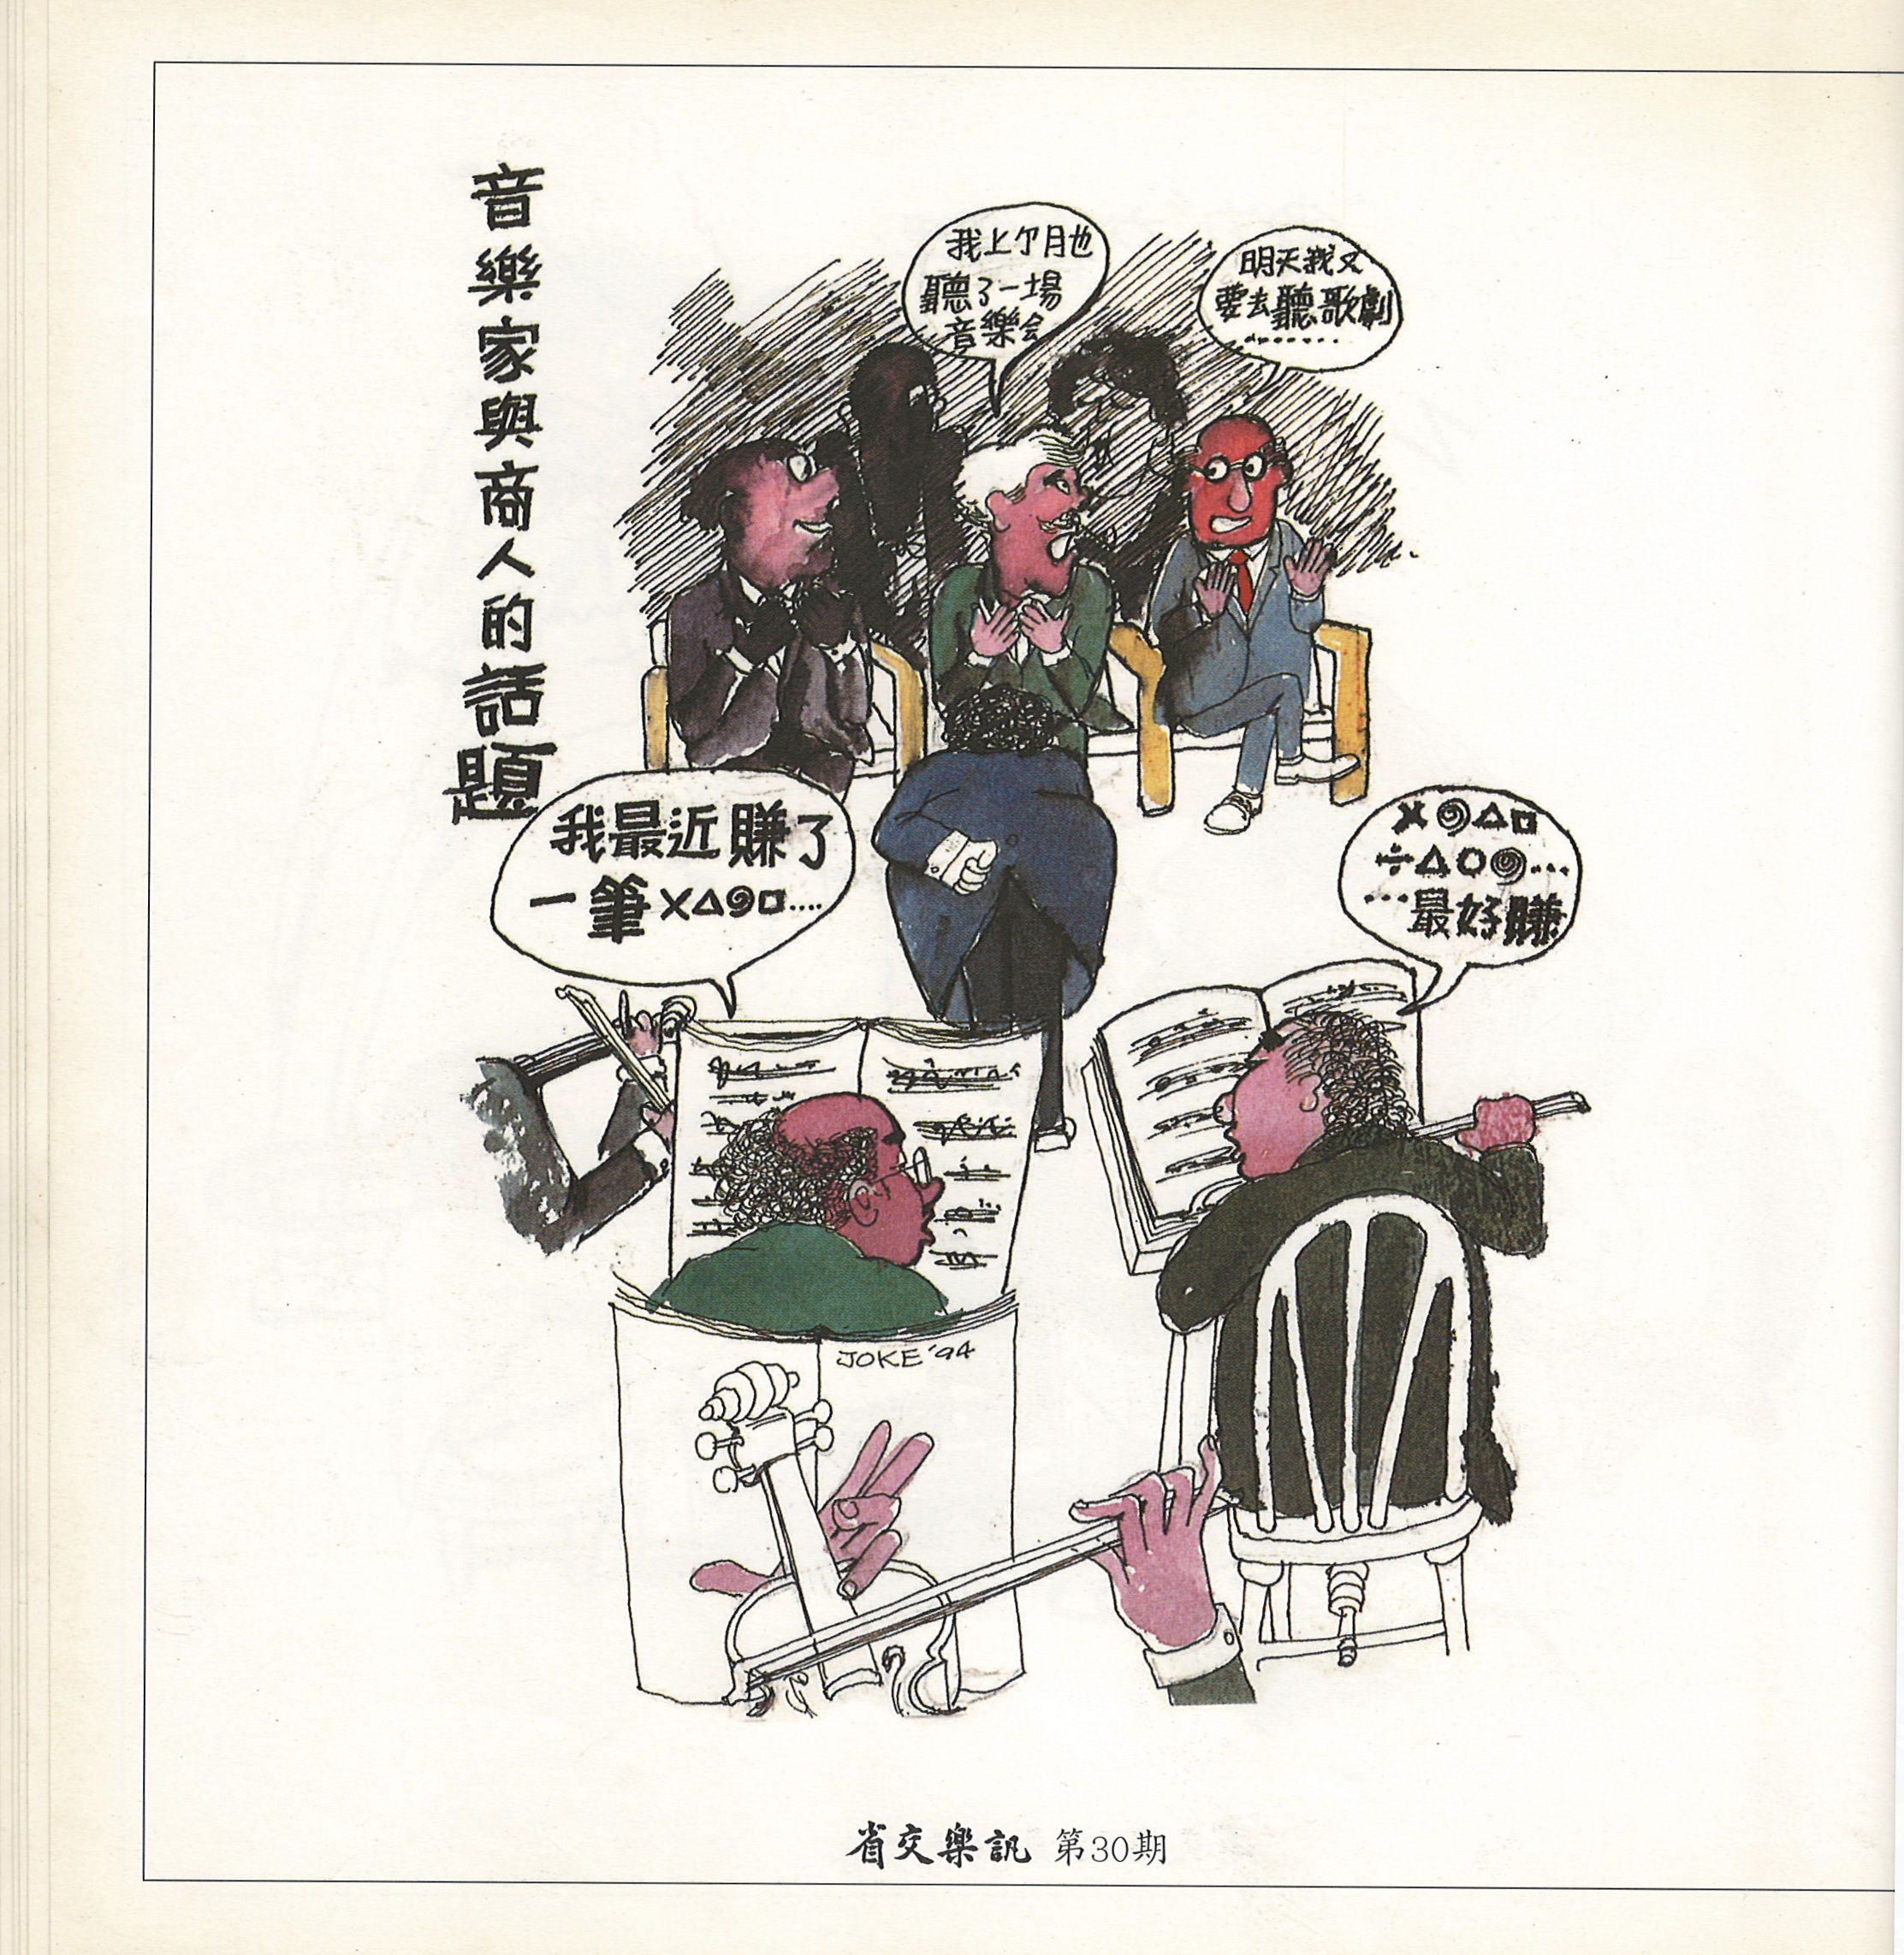 音樂家與商人的話題
我上个月也
聽了一場
音樂会
明天我又
要去聽歌劇
.......
我最近賺了
一筆X△@□....
×@△□
÷△○@...
...最好賺
JOKE '94
省交樂訊 第30期